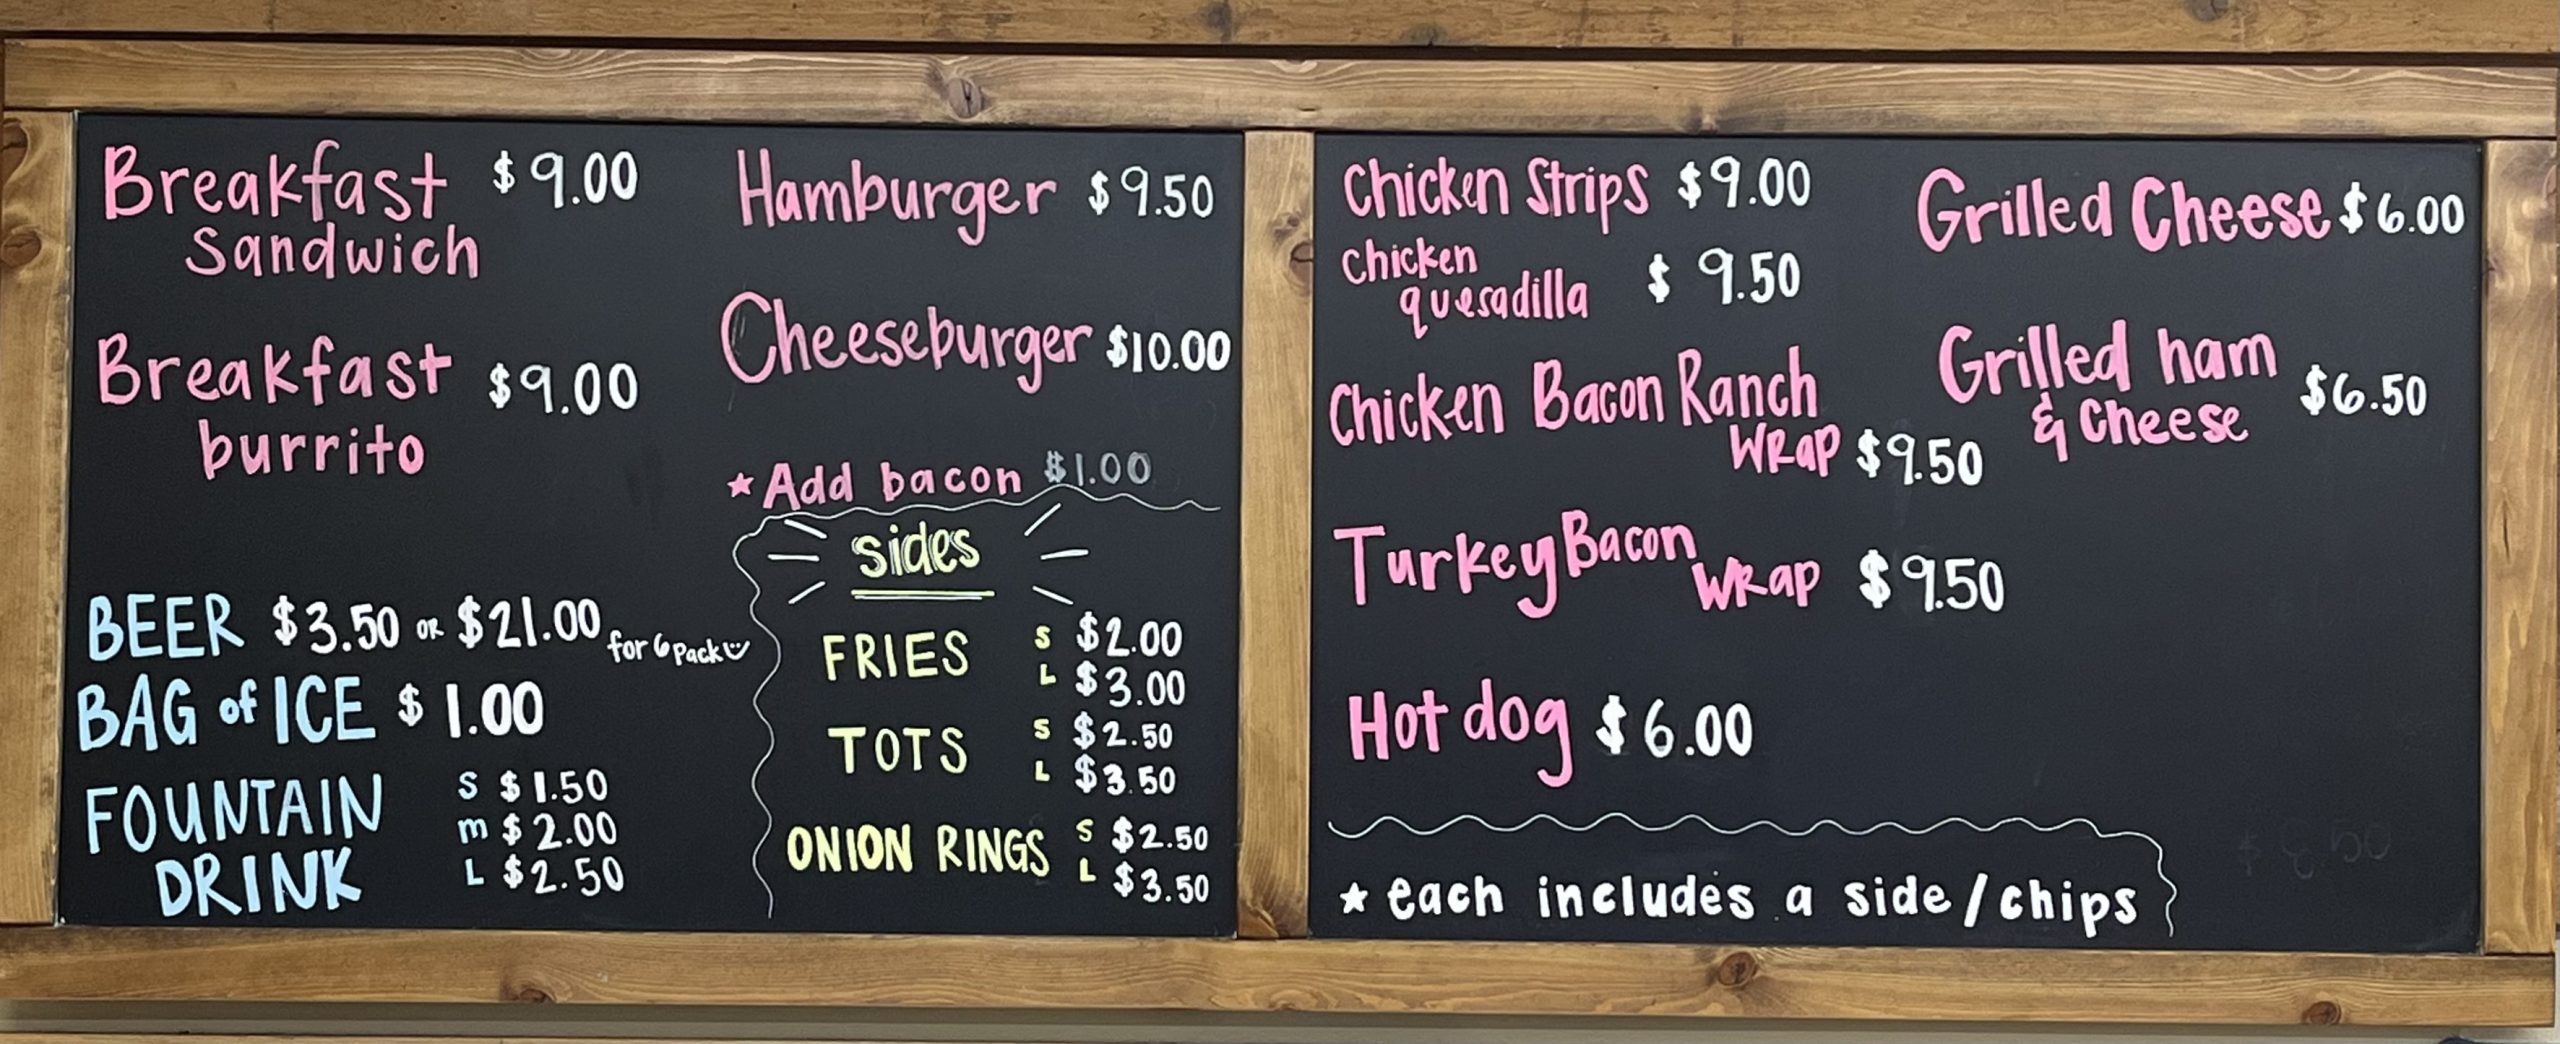 Breakfast $9.00
Sandwich
Breakfast $9.00
burrito
BEER $3.50 OR $21.00 for 6 pack
BAG of ICE $1.00
FOUNTAIN
DRINK
S $1.50
m $2.00
L $2.50
Hamburger $9.50
Cheeseburger $10.00
★ Add bacon $1.00
sides
FRIES S $2.00
L $3.00
TOTS S $2.50
L $3.50
ONION RINGS S $2.50
L $3.50
Chicken Strips $9.00
Chicken
quesadilla $9.50
Chicken Bacon Ranch
WRap $9.50
Turkey Bacon
WRap $9.50
Hot dog $6.00
Grilled Cheese $6.00
Grilled ham
& Cheese $6.50
★ each includes a side/chips